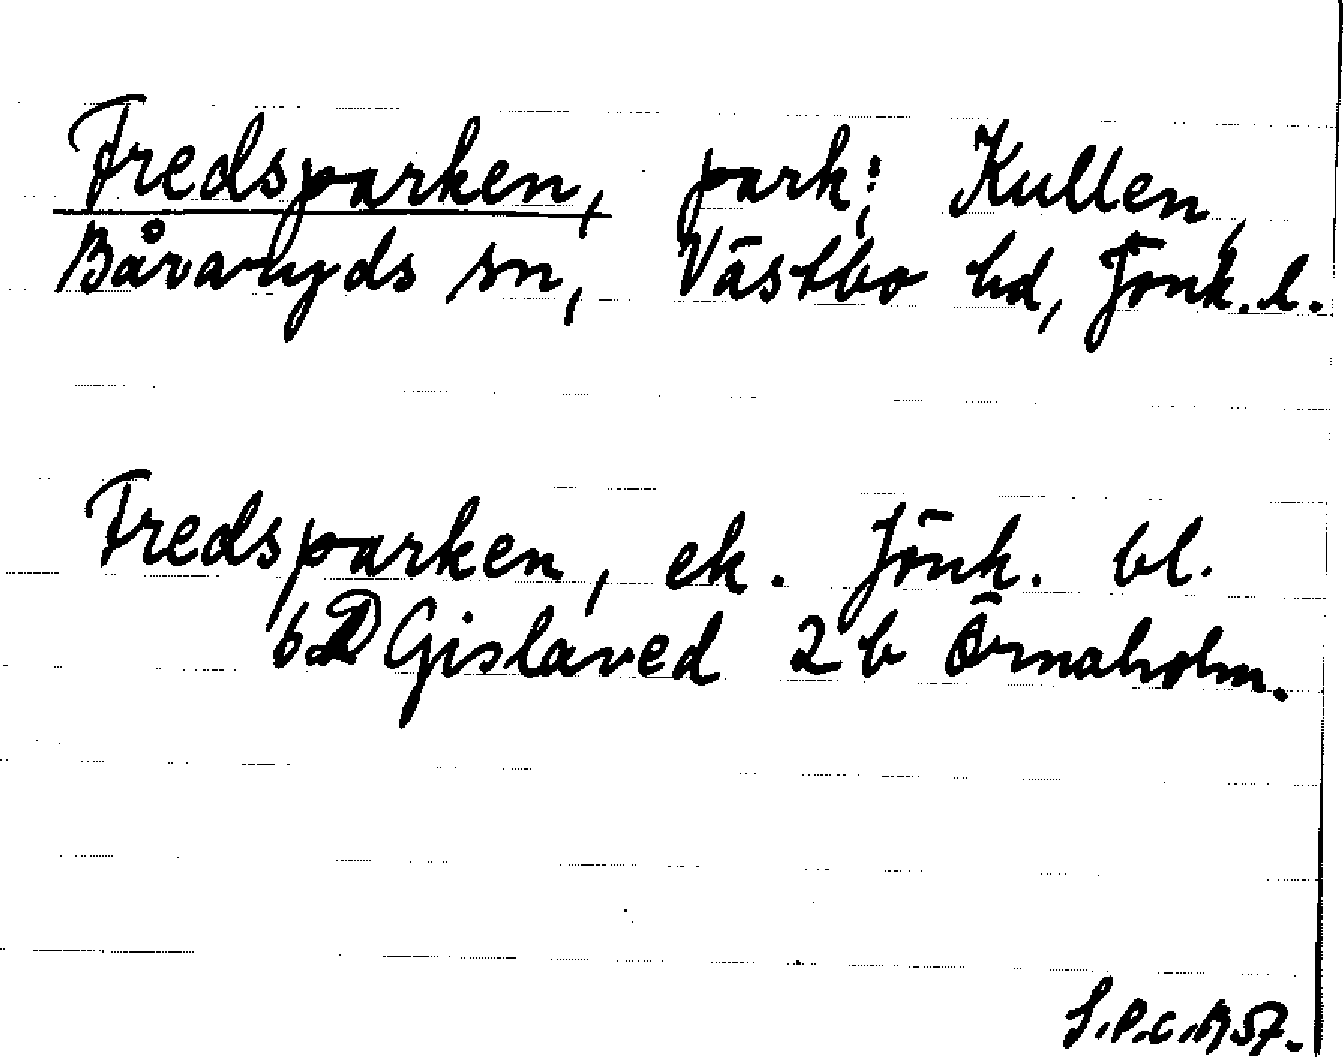 Fredsparken, park; Kullen,
Båraryds sn, Västbo hd, Jönk. l.
Fredsparken, ek. Jönk. bl.
6D Gislaved 2 b Örnaholm.
57.